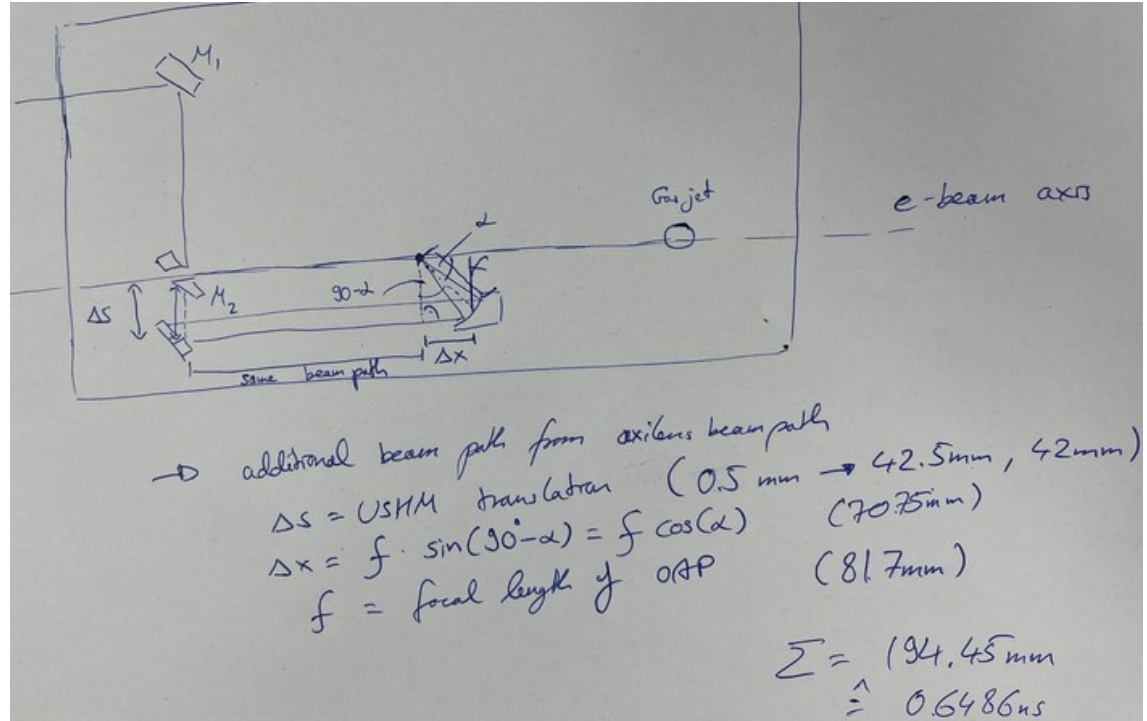 M₁
Gas jet
e-beam axis
α
90-α
M₂
Δs
Δx
same beam path
→ additional beam path from axilens beam path
Δs = USHM translation (0.5 mm → 42.5mm, 42mm)
Δx = f · sin(90°-α) = f cos(α) (70.75mm)
f = focal length of OAP (81.7mm)
Σ = 194.45mm
≙ 0.6486ns